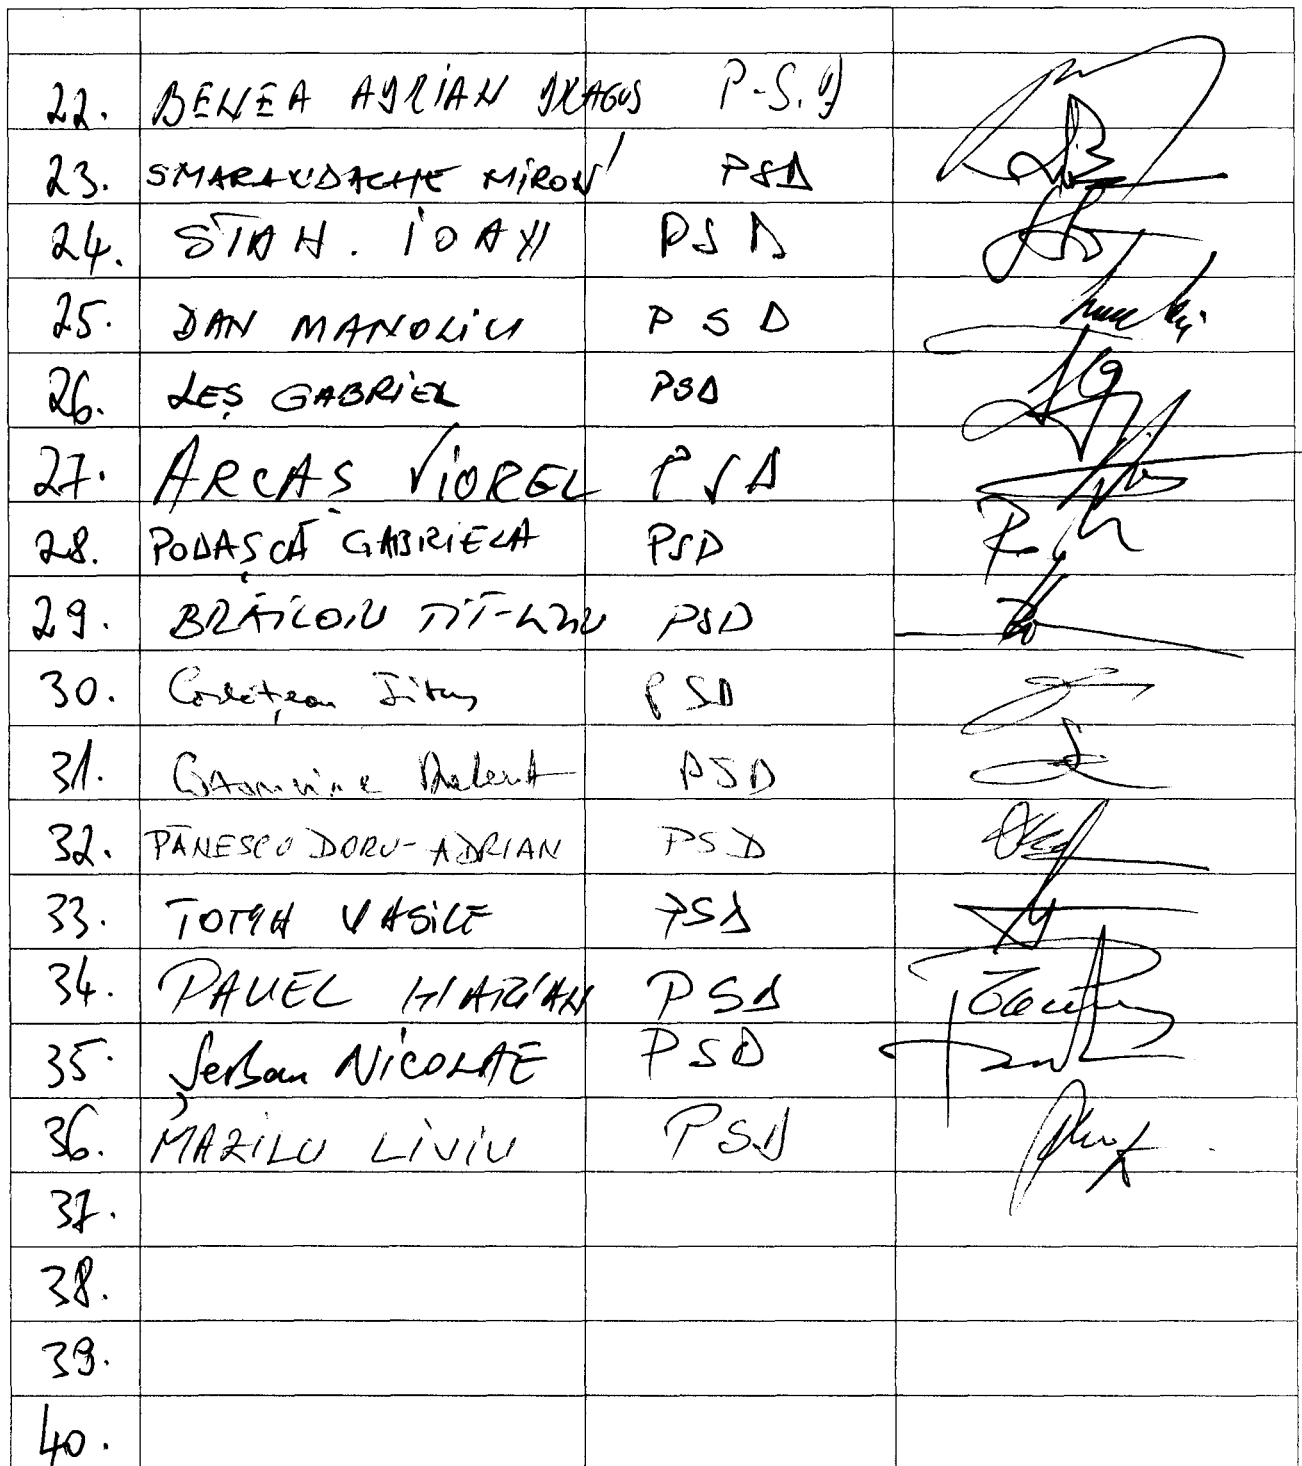 22. BENEA ADRIAN DRAGOS P.S.D
23. SMARANDACHE MIRON PSD
24. STAN. IOAN PSD
25. DAN MANOLIU PSD
26. LEȘ GABRIEL PSD
27. ARCAȘ VIOREL PSD
28. PODAȘCĂ GABRIELA PSD
29. BRĂILOIU TIT-LIVIU PSD
30. PSD
31. PSD
32. PĂNESCU DORU-ADRIAN PSD
33. TOTPH VASILE PSD
34. PAVEL MARIAN PSD
35. Șerban NICOLAE PSD
36. MAZILU LIVIU PSD
37.
38.
39.
40.